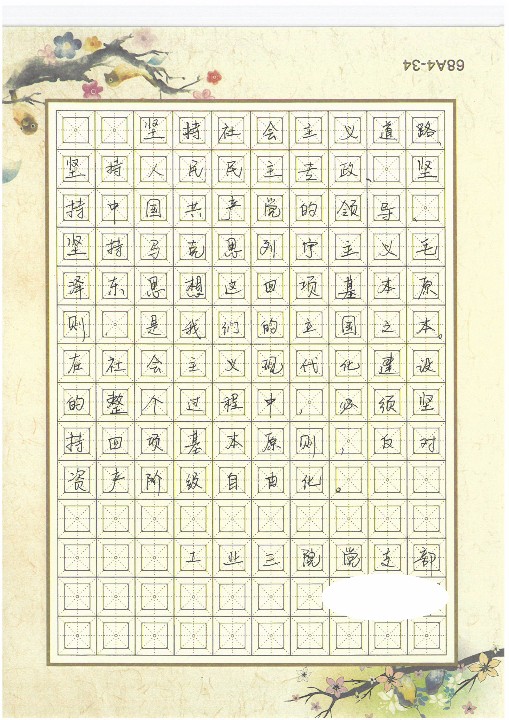 68A4-34
坚持社会主义道路、
坚持人民民主专政、坚
持中国共产党的领导、
坚持马克思列宁主义毛
泽东思想这四项基本原
则，是我们的立国之本。
在社会主义现代化建设
的整个过程中，必须坚
持四项基本原则，反对
资产阶级自由化。
工业三院党支部